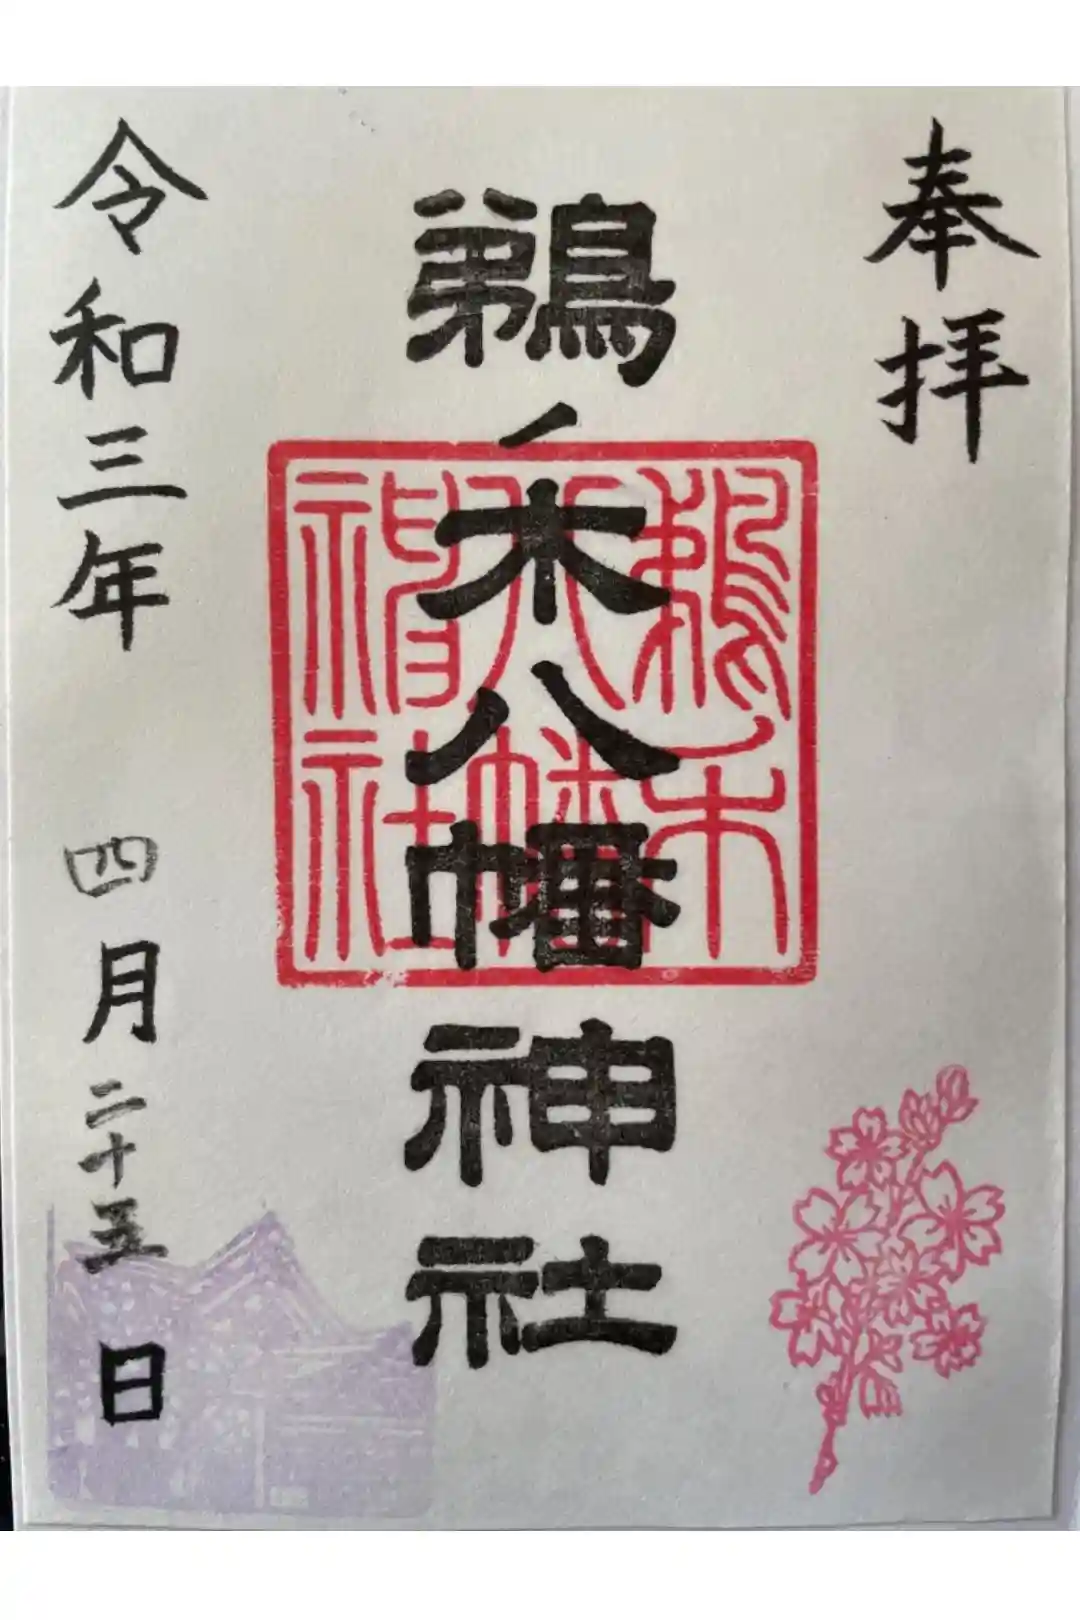 奉拝
鵜ノ木八幡神社
鵜ノ木
八幡
神社
令和三年 四月二十五日